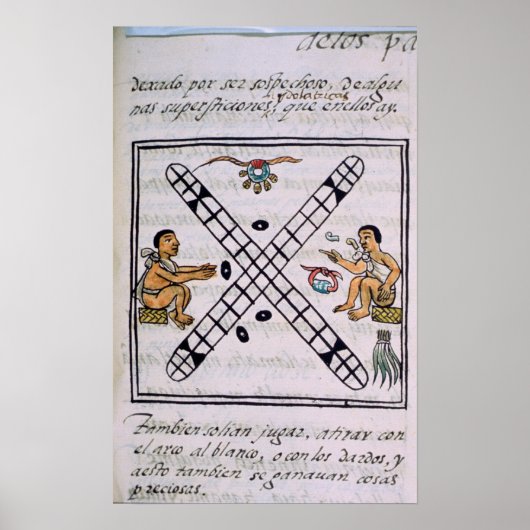 delos pa
dexado por ser sospechoso, dealgu
ydolatricas
nas supersticiones, que enellos ay.
Tambien solian jugar, atirar con
el arco al blanco, o con los dardos, y
aesto tambien se ganauan cosas
preciosas.